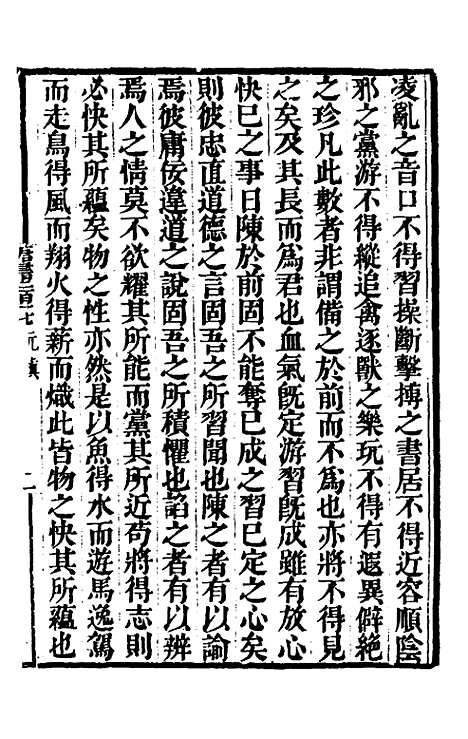 凌亂之音口不得習操斷擊搏之書居不得近容順陰
邪之黨游不得縱追禽逐獸之樂玩不得有遐異僻絶
之珍凡此數者非謂備之於前而不爲也亦將不得見
之矣及其長而爲君也血氣旣定游習旣成雖有放心
快已之事日陳於前固不能奪已成之習已定之心矣
則彼忠直道德之言固吾之所習聞也陳之者有以諭
焉彼庸佞違道之說固吾之所積懼也諂之者有以辨
焉人之情莫不欲耀其所能而黨其所近苟將得志則
必快其所蘊矣物之性亦然是以魚得水而遊馬逸駕
而走鳥得風而翔火得薪而熾此皆物之快其所蘊也
唐書一百七 元稹 二